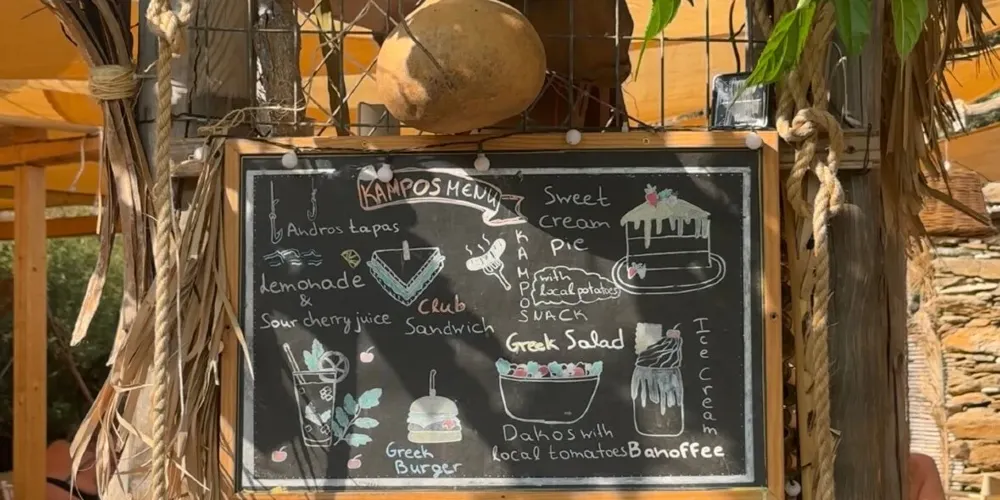 KAMPOS MENU
Andros tapas
Lemonade
&
Sour cherry juice
Club
Sandwich
KAMPOS
SNACK
with
local potatoes
Sweet
cream
pie
Greek Salad
Dakos with
local tomatoes
Greek
Burger
Ice cream
Banoffee